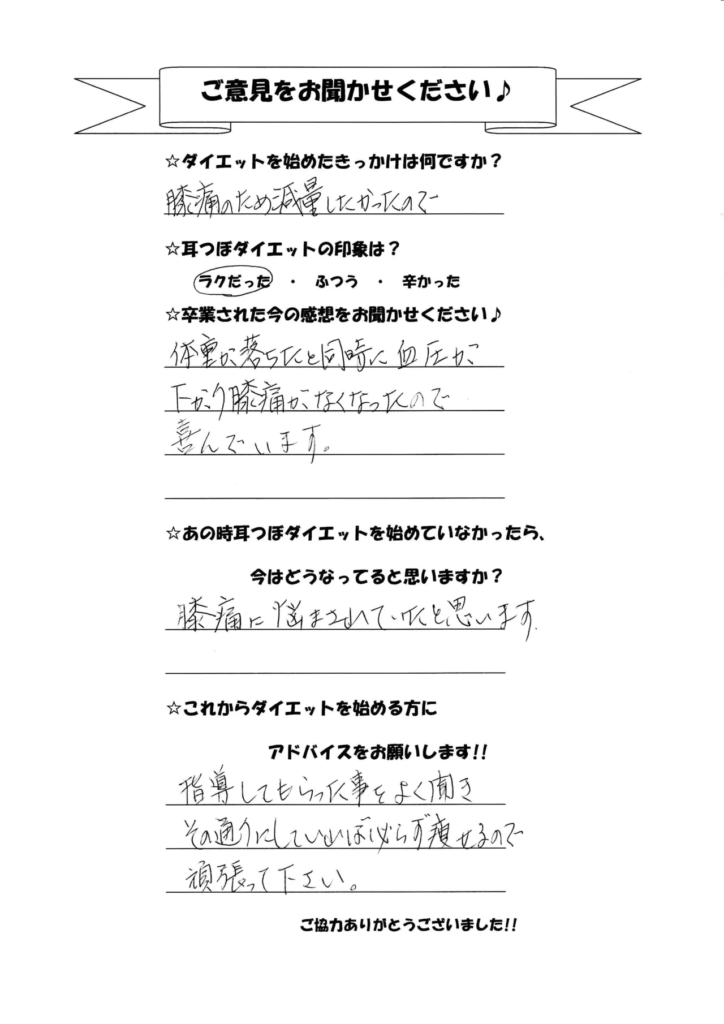 ご意見をお聞かせください♪
☆ダイエットを始めたきっかけは何ですか？
膝痛のため減量したかったので
☆耳つぼダイエットの印象は？
ラクだった ・ ふつう ・ 辛かった
☆卒業された今の感想をお聞かせください♪
体重が落ちたと同時に血圧が
下がり膝痛がなくなったので
喜んでいます。
☆あの時耳つぼダイエットを始めていなかったら、
今はどうなってると思いますか？
膝痛に悩まされていたと思います
☆これからダイエットを始める方に
アドバイスをお願いします!!
指導してもらった事をよく聞き
その通りにしていれば必らず痩せるので
頑張って下さい。
ご協力ありがとうございました!!